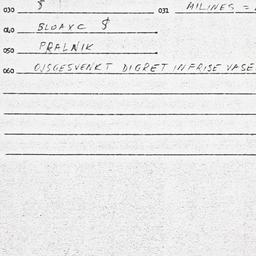 030 $ 031 MILINES =
040 BLOAXC $
050 PRALNIK
060 OJSGESVENKT DIGRET INFRISE VASE